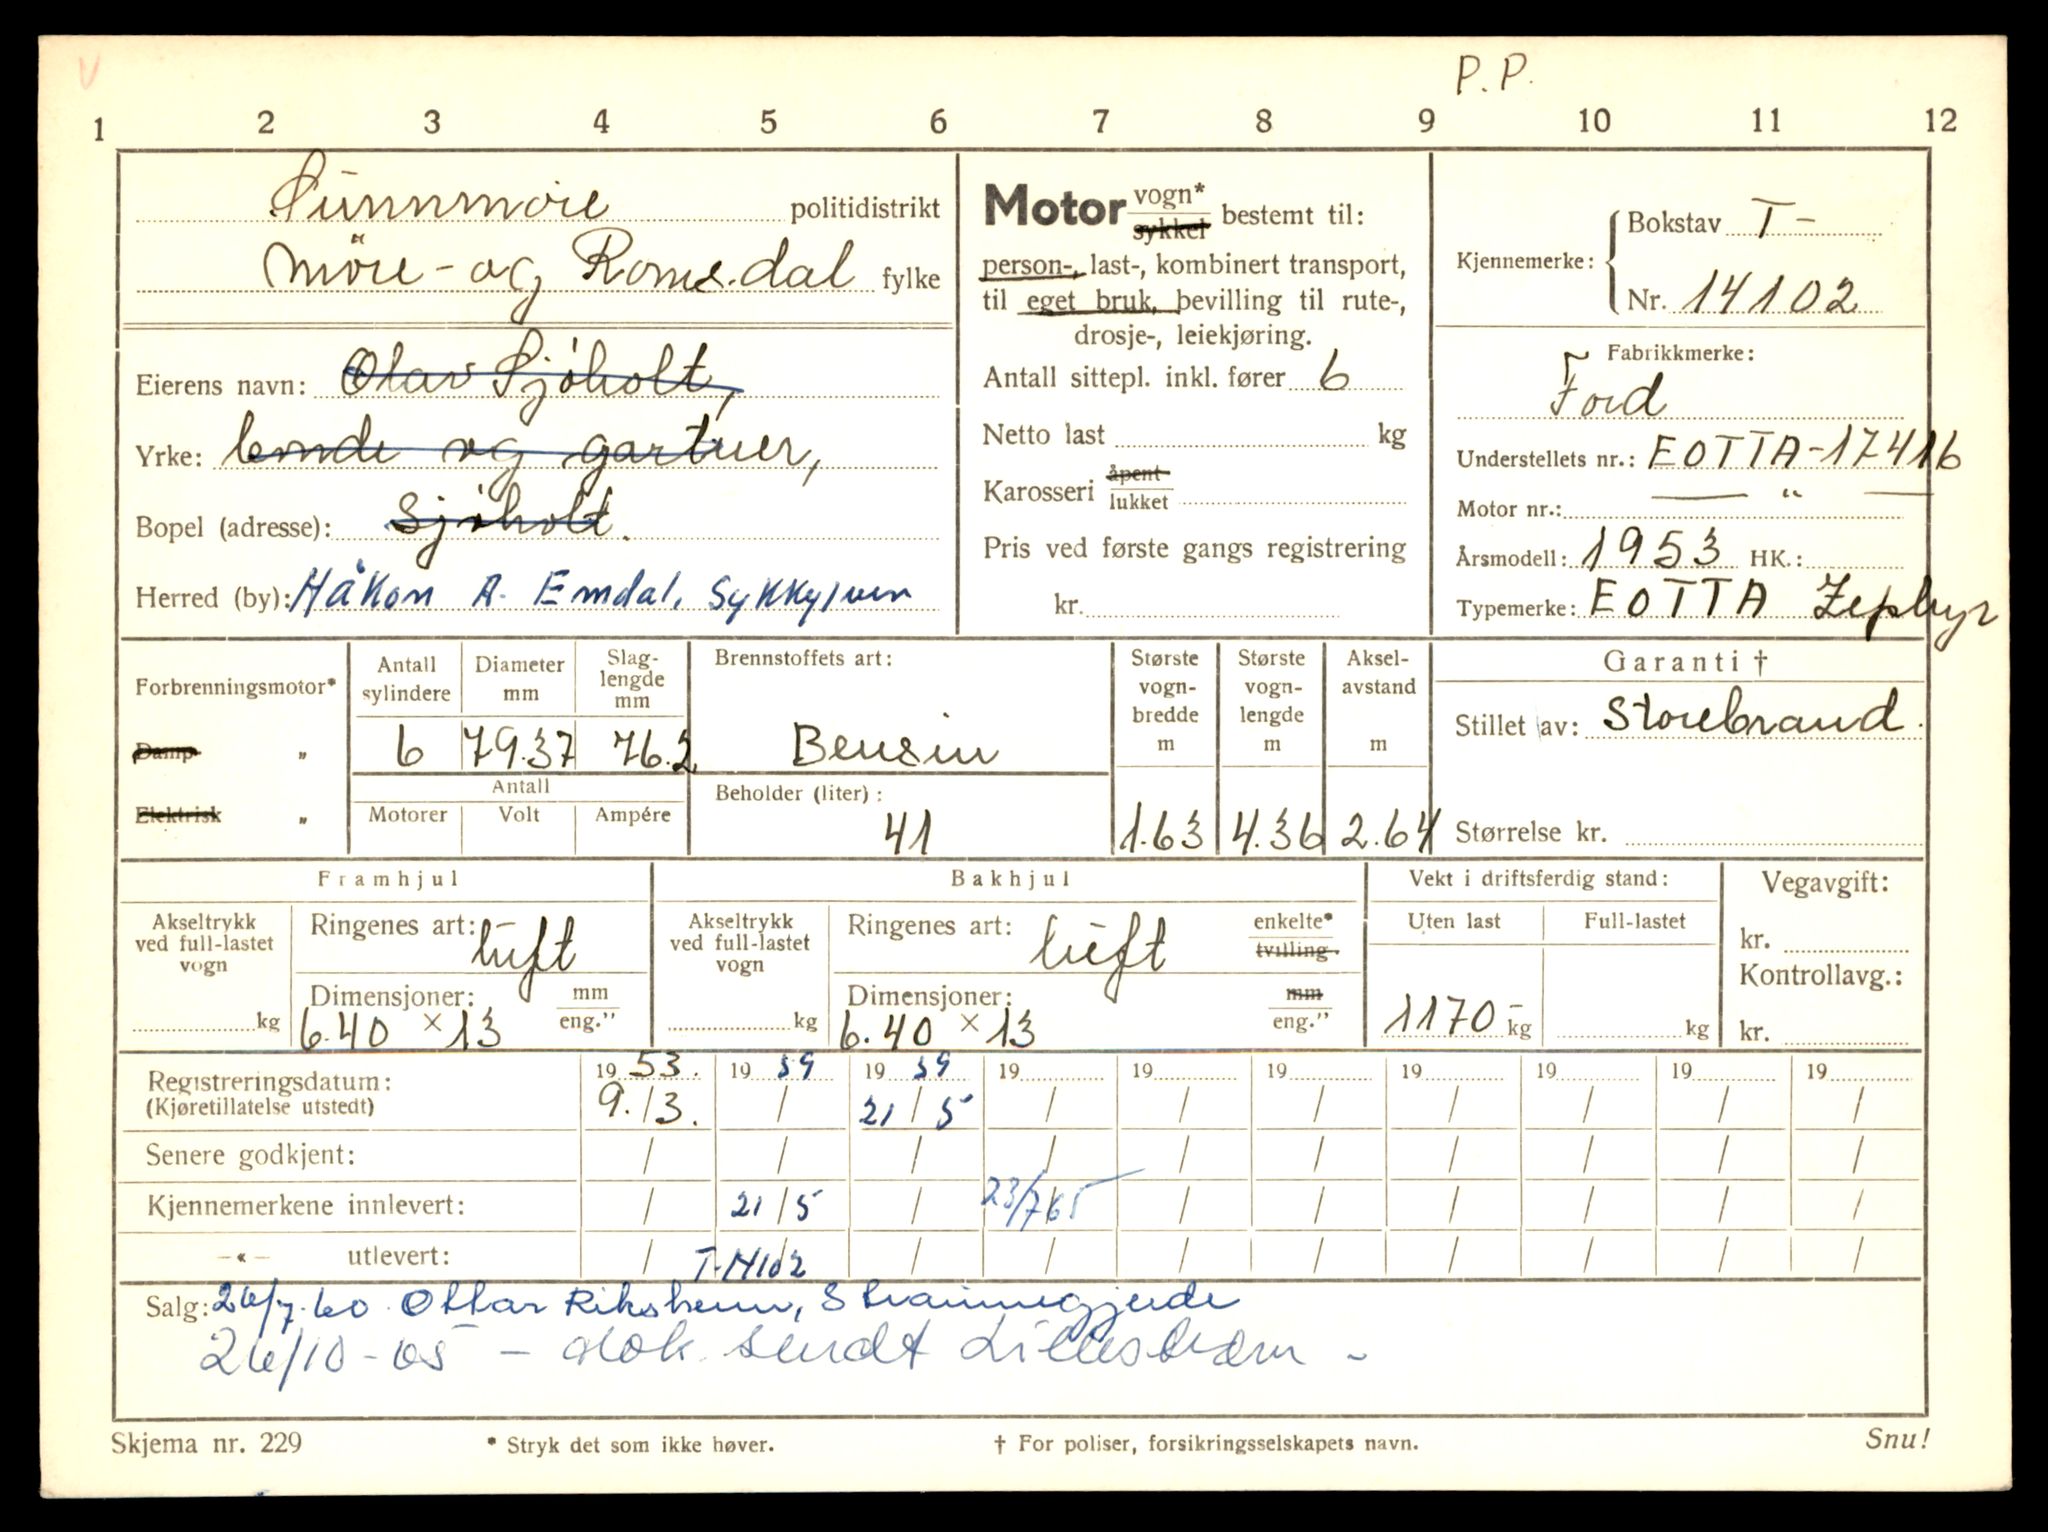 V
P. P.
1 2 3 4 5 6 7 8 9 10 11 12
Sunnmöre politidistrikt
Möre- og Romsdal fylke
Eierens navn: Olav Sjøholt,
Yrke: bonde og gartner,
Bopel (adresse): Sjøholt.
Herred (by): Håkon A. Emdal, Sykkylven
Motor vogn* sykkel bestemt til:
person-, last-, kombinert transport,
til eget bruk, bevilling til rute-,
drosje-, leiekjøring.
Antall sittepl. inkl. fører 6
Netto last kg
Karosseri åpent lukket
Pris ved første gangs registrering
kr.
Kjennemerke: Bokstav T-
Nr. 14102
Fabrikkmerke:
Ford
Understellets nr.: EOTTA-17416
Motor nr.: — " —
Årsmodell: 1953 HK.:
Typemerke: EOTTA Zephyr
Forbrenningsmotor*
Damp „
Elektrisk „
Antall sylindere Diameter mm Slag-lengde mm
6 79.37 76.2
Antall
Motorer Volt Ampére
Brennstoffets art:
Bensin
Beholder (liter):
41
Største vogn-bredde m Største vogn-lengde m Aksel-avstand m
1.63 4.36 2.64
Garanti †
Stillet av: Storebrand.
Størrelse kr.
Framhjul
Akseltrykk ved full-lastet vogn
kg
Ringenes art: luft
Dimensjoner: mm eng."
6.40 × 13
Bakhjul
Akseltrykk ved full-lastet vogn
kg
Ringenes art: luft enkelte* tvilling
Dimensjoner: mm eng."
6.40 × 13
Vekt i driftsferdig stand:
Uten last Full-lastet
1170- kg kg
Vegavgift:
kr.
Kontrollavg.:
kr.
Registreringsdatum: 19 53. 19 59 19 59 19 19 19 19 19 19 19
(Kjøretillatelse utstedt) 9./3. / 21/5 / / / / / / /
Senere godkjent: / / / / / / / / /
Kjennemerkene innlevert: / 21/5 / 23/7 65 / / / / / /
—«— utlevert: / T-14102 / / / / / / / /
Salg: 26/7.60. Ottar Riksheim, Straumegjerde
26/10-65 – dok. sendt Lillestrøm -
Skjema nr. 229 * Stryk det som ikke høver. † For poliser, forsikringsselskapets navn. Snu!